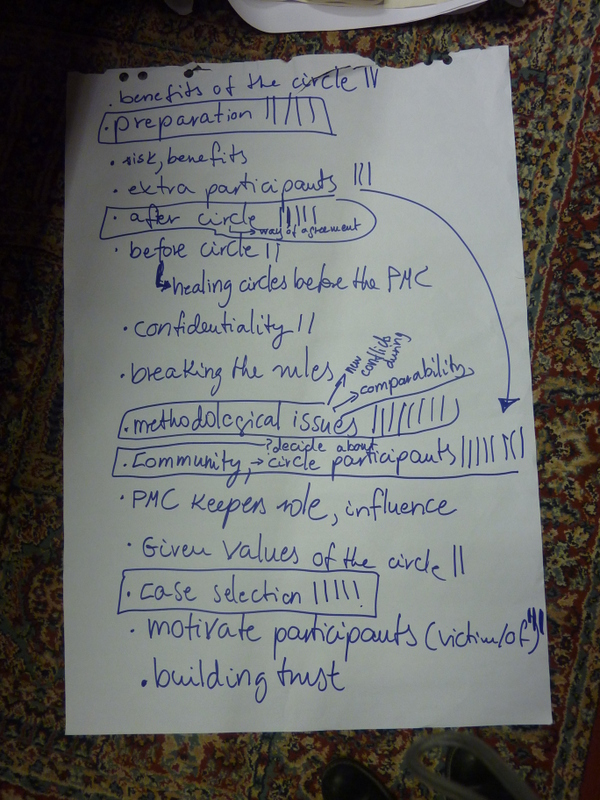 · benefits of the circle IV
· preparation
· risk, benefits
· extra participants III
· after circle IIIII
→ way of agreement
· before circle II
→ healing circles before the PMC
· confidentiality II
· breaking the rules
→ new conflicts during
→ comparability
· methodological issues IIIIIIII
? decide about
· Community, → circle participants
· PMC keepers role, influence
· Given values of the circle II
· case selection IIIII
· motivate participants (victim/of)
· building trust